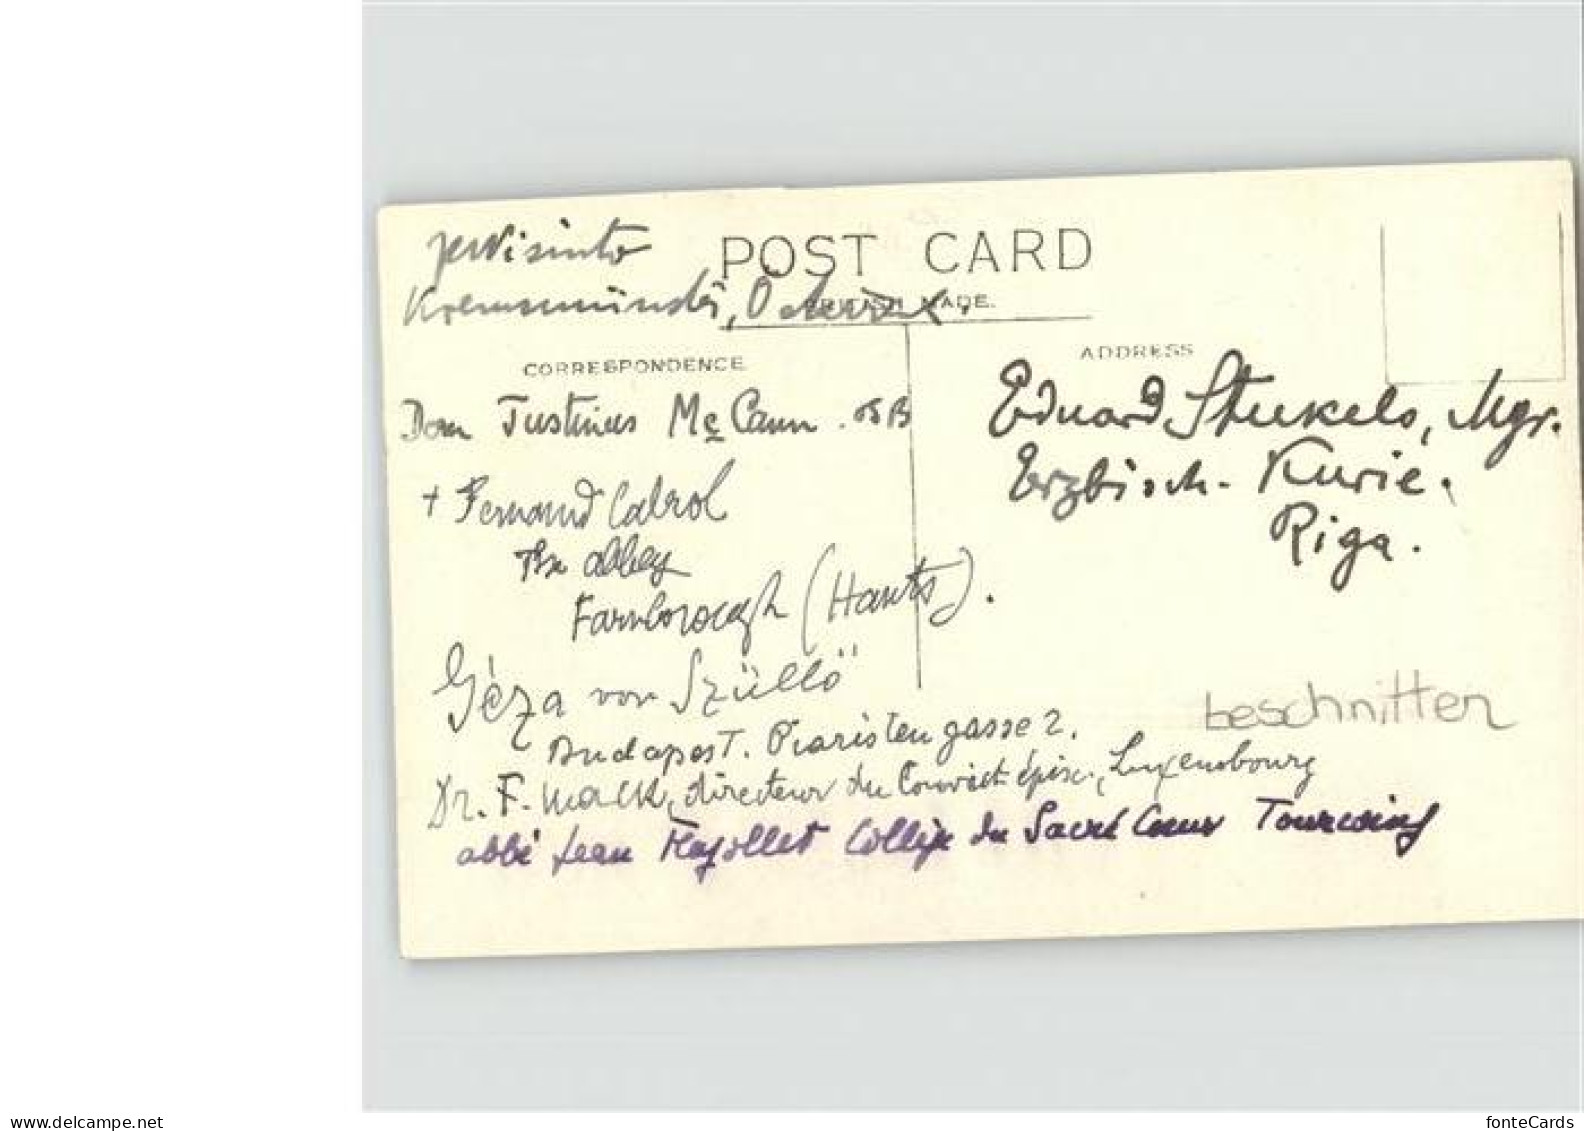 POST CARD
BRITISH MADE.
Kremsmünster,
CORRESPONDENCE
ADDRESS
Dom Justinus McCann. OSB
+ Fernand Cabrol
The abbey
Farnborough (Hants).
Géza von Szüllő
Budapest. Piaristengasse 2.
Dr. F. Mack, directeur du Convict épisc., Luxembourg
abbé Jean Collège du Sacré Coeur Tourcoing
Eduard Stukels, Mgr.
Erzbisch. Kurie.
Riga.
beschnitten
www.delcampe.net
fonteCards